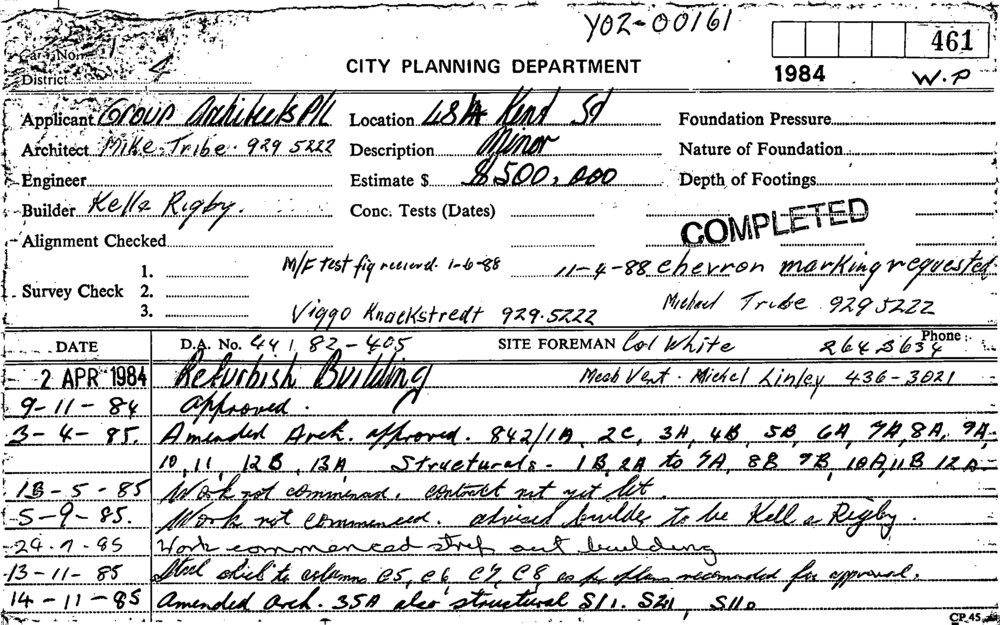 YOZ-00161
461
Card No.
1984 W.P
District 4
CITY PLANNING DEPARTMENT
Applicant Group Architects P/L Location 48A Kent St Foundation Pressure
Architect Mike Tribe. 929 5222 Description Minor Nature of Foundation
Engineer Estimate $ $500,000 Depth of Footings
Builder Kell & Rigby. Conc. Tests (Dates)
COMPLETED
Alignment Checked
1. M/F Test fig received. 1-6-88 11-4-88 chevron marking requested
Survey Check 2.
3. Viggo Knackstredt 929.5222 Michael Tribe 929 5222
DATE D.A. No. 441 82-405 SITE FOREMAN Col White Phone: 264 3634
2 APR 1984 Refurbish Building Mech Vent. Michel Linley 436-3021
9-11-84 approved.
3-4-85. Amended Arch. approved. 842/1A, 2C, 3A, 4B, 5B, 6A, 7A, 8A, 9A,
10, 11, 12B, 13A Structurals - 1B, 2A to 7A, 8B 9B, 10A, 11B 12A
13-5-85 Work not commenced. contract not yet let.
5-9-85. Work not commenced. advised builder to be Kell & Rigby.
Work commenced strip out building
13-11-85 to columns C5, C6, C7, C8, as per plans recommended for approval.
14-11-85 Amended Arch. 35A also structural S11. S21, S110
CP.45